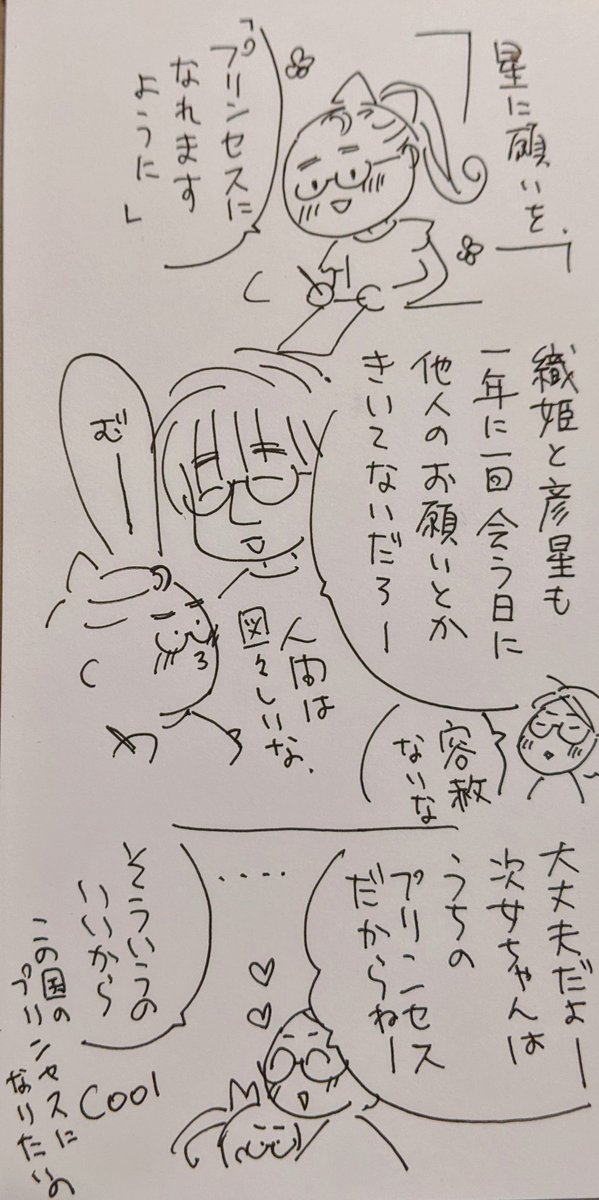 星に願いを.
「プリンセスに
なれます
ように」
織姫と彦星も
一年に一回会う日に
他人のお願いとか
きいてないだろー
むー
人間は
図々しいな.
容赦
ないな
大丈夫だよー
次女ちゃんは
うちの
プリンセス
だからねー
....
そういうの
いいから
この国の
プリンセスに
なりたいの
COOl